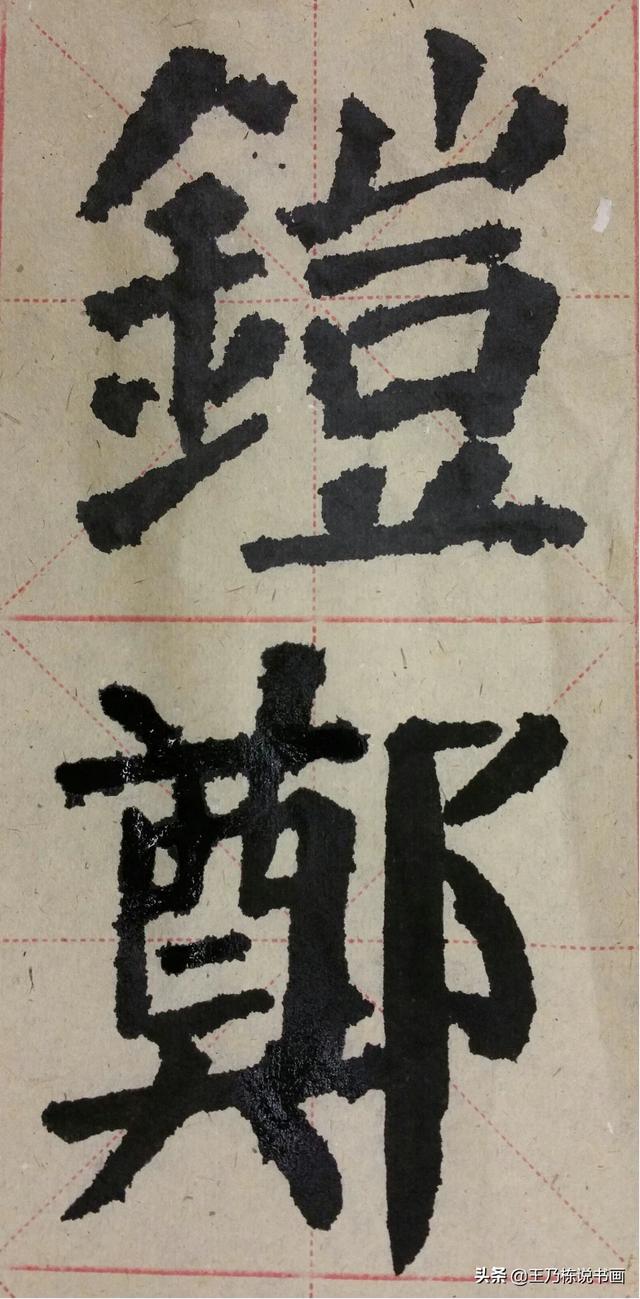 鎧
鄭
头条 @王乃栋说书画